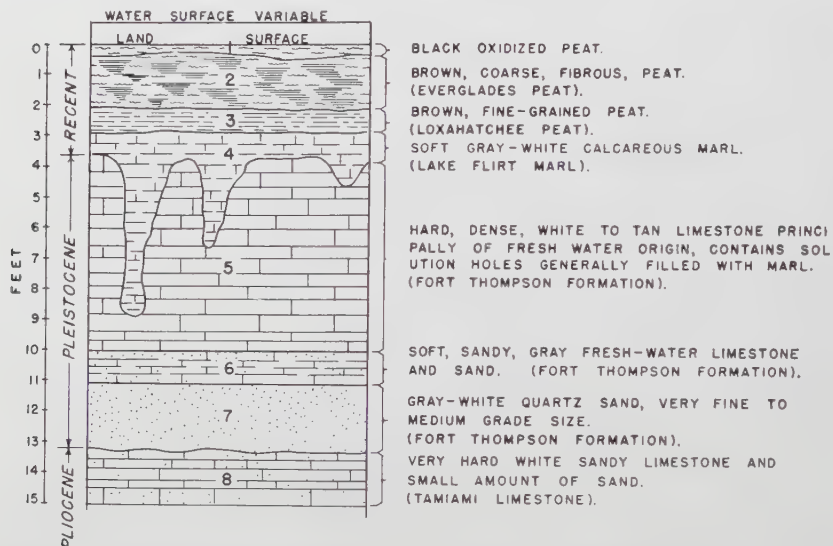 WATER SURFACE VARIABLE
LAND SURFACE
FEET
0
1
2
3
4
5
6
7
8
9
10
11
12
13
14
15
RECENT
PLEISTOCENE
PLIOCENE
1
2
3
4
5
6
7
8
BLACK OXIDIZED PEAT.
BROWN, COARSE, FIBROUS, PEAT.
(EVERGLADES PEAT).
BROWN, FINE-GRAINED PEAT.
(LOXAHATCHEE PEAT).
SOFT GRAY-WHITE CALCAREOUS MARL.
(LAKE FLIRT MARL).
HARD, DENSE, WHITE TO TAN LIMESTONE PRINCI
PALLY OF FRESH WATER ORIGIN, CONTAINS SOL
UTION HOLES GENERALLY FILLED WITH MARL.
(FORT THOMPSON FORMATION).
SOFT, SANDY, GRAY FRESH-WATER LIMESTONE
AND SAND. (FORT THOMPSON FORMATION).
GRAY-WHITE QUARTZ SAND, VERY FINE TO
MEDIUM GRADE SIZE.
(FORT THOMPSON FORMATION).
VERY HARD WHITE SANDY LIMESTONE AND
SMALL AMOUNT OF SAND.
(TAMIAMI LIMESTONE).